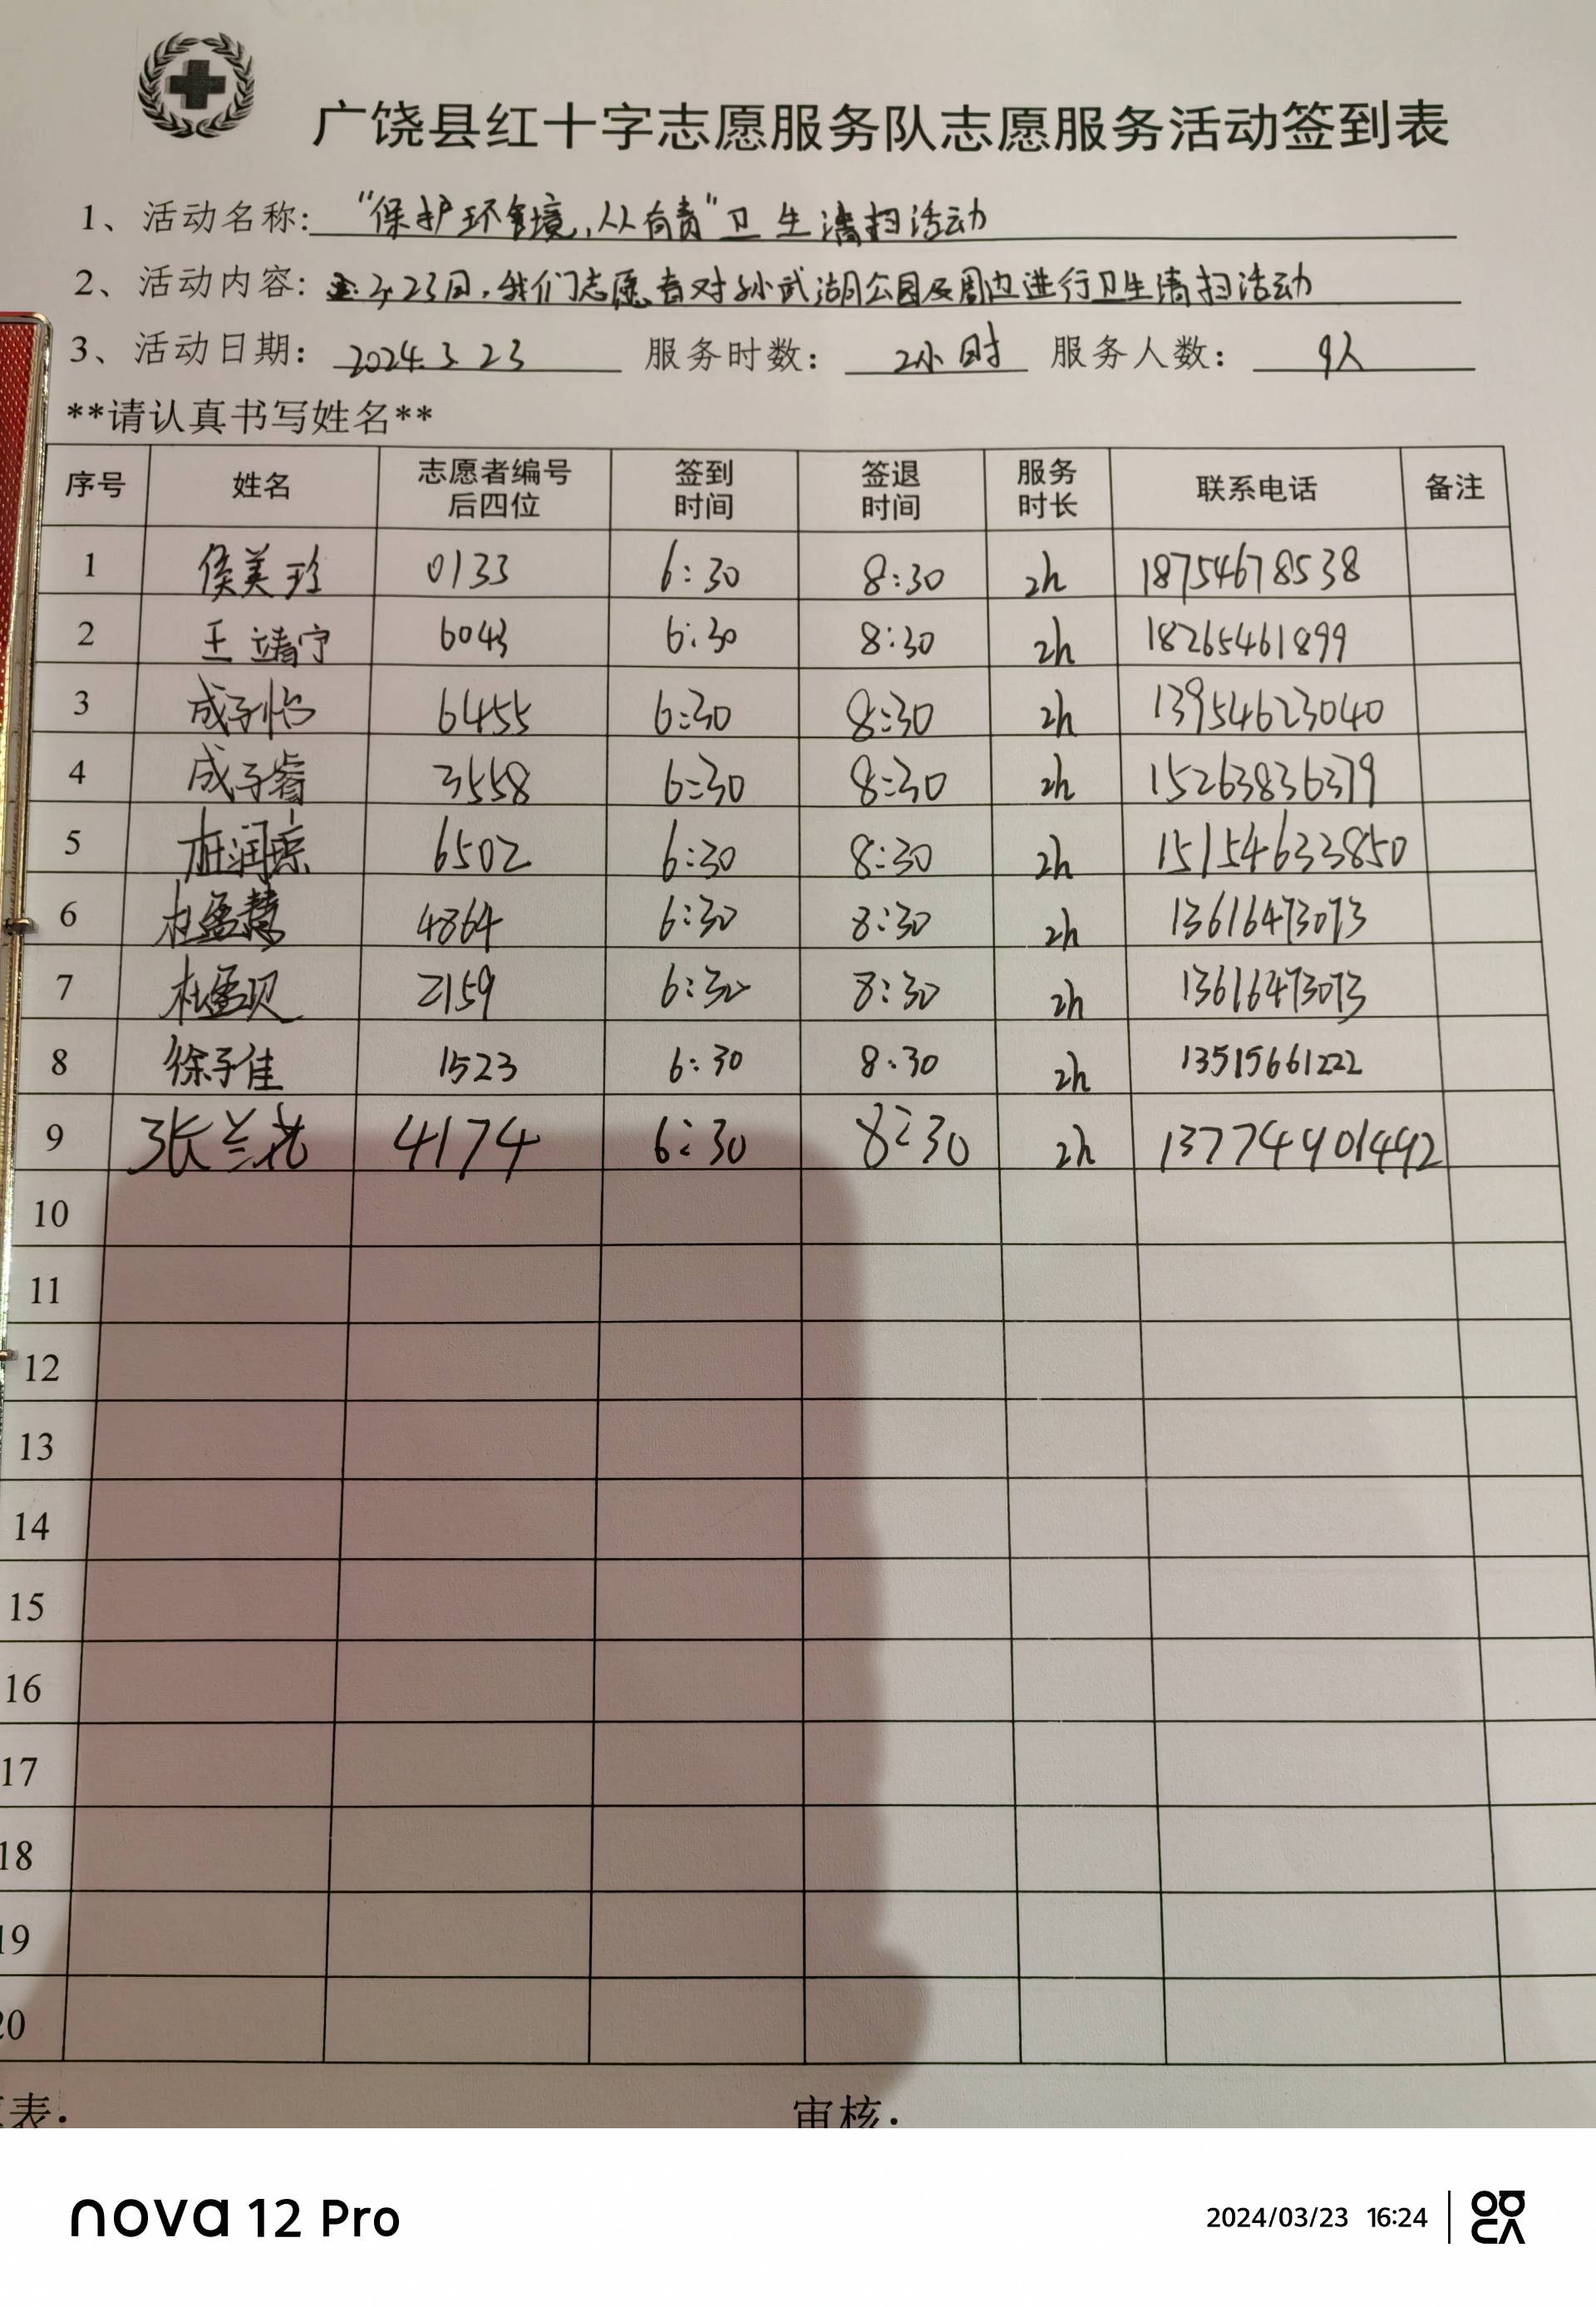 广饶县红十字志愿服务队志愿服务活动签到表
1、活动名称: "保护环境,从有责"卫生清扫活动
2、活动内容: 3.23日,我们志愿者对孙武湖公园及周边进行卫生清扫活动
3、活动日期: 2024.3.23 服务时数: 2小时 服务人数: 9人
**请认真书写姓名**
序号 姓名 志愿者编号后四位 签到时间 签退时间 服务时长 联系电话 备注
1 侯美玲 0133 6:30 8:30 2h 18754678538
2 王靖宁 6043 6:30 8:30 2h 18265461899
3 成子怡 6455 6:30 8:30 2h 13954623040
4 成子睿 3558 6:30 8:30 2h 15263836379
5 6502 6:30 8:30 2h 15154633850
6 杜孟慧 4864 6:30 8:30 2h 13616473073
7 杜孟贝 2159 6:30 8:30 2h 13616473073
8 徐子佳 1523 6:30 8:30 2h 13515661222
9 张兰花 4174 6:30 8:30 2h 137744901442
10
11
12
13
14
15
16
17
18
19
20
表: 审核:
nova 12 Pro
2024/03/23 16:24